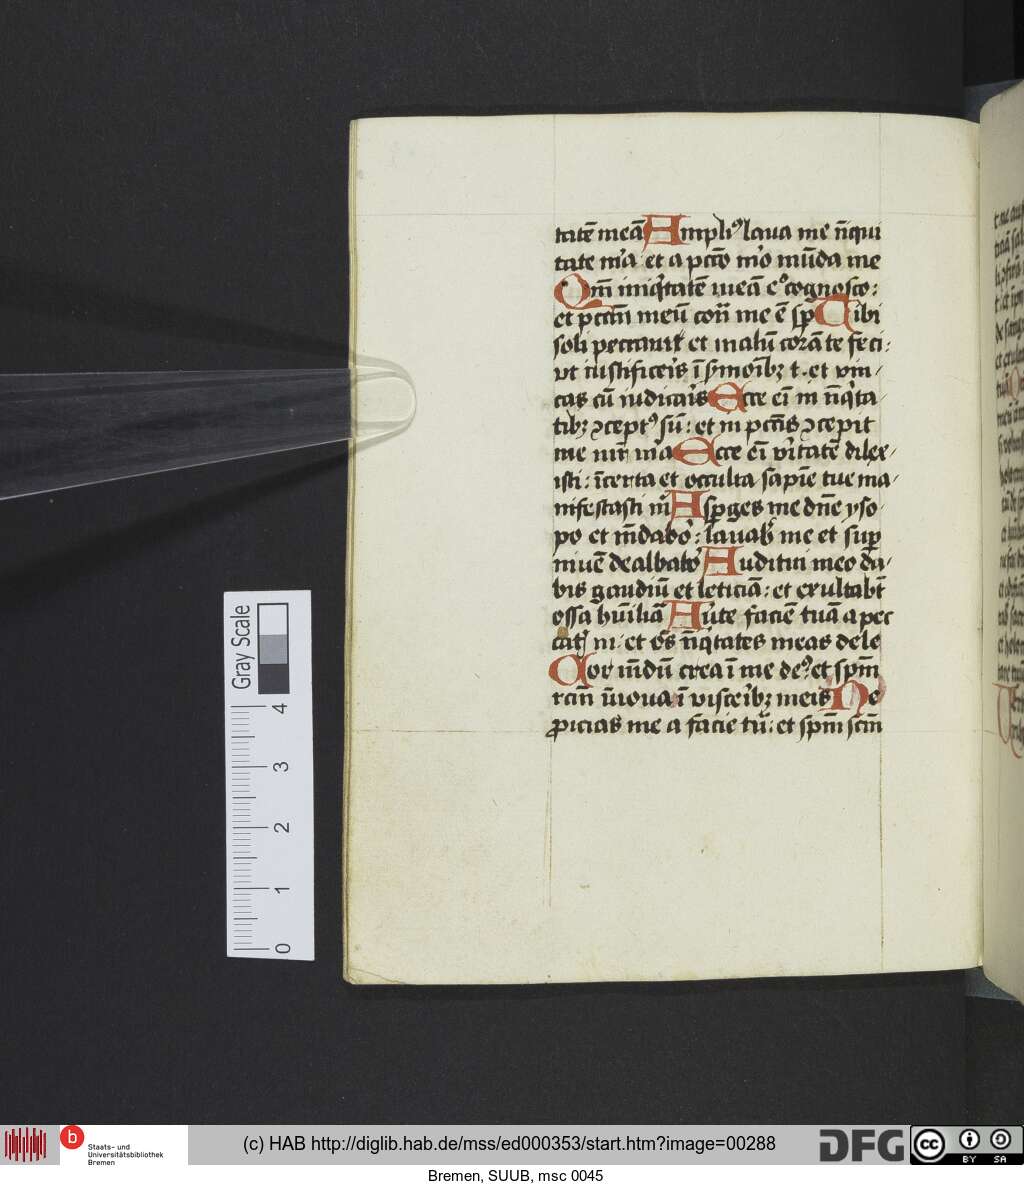 tatē meā Ampliꝰ laua me īiqui
tate m̄a et a pctō m̄o mūda me
Qm̄ iniq̄tatē meā eᵒ cognosco:
et pctm̄ meū cont̄ me ē sp̄ Tibi
soli peccaui et malū corā te feci:
vt iustificeis ī ẜmoībꝫ t. et vin-
cas cū iudicais Ecce ei̅ in īiq̄ta-
tibꝫ ꝯceptꝰ sū: et in pctīs ꝯcepit
me mr̄ m̄a Ecce ei̅ v̄itatē dilex-
isti: īcerta et occulta sapīe tue ma-
nifestasti m̄ Asp̄ges me dn̄e yso-
po et mūdaboʳ: lauabˢ me et sup̄
niuē dealbaboʳ Auditui meo da-
bis gaudiū et leticiā: et exultabt̄
ossa hūiliā Aūte faciē tuā a pec
catꝭ m: et oēs īiq̄tates meas dele
Cor mūdū crea ī me deꝰ: et sp̄m
rctm̄ īnoua ī viscēibꝫ meis Ne
ꝓicias me a facie tū: et sp̄m scm̄
Gray Scale
4
3
2
1
0
b Staats- und
Universitätsbibliothek
Bremen
(c) HAB http://diglib.hab.de/mss/ed000353/start.htm?image=00288
DFG
cc BY SA
Bremen, SUUB, msc 0045